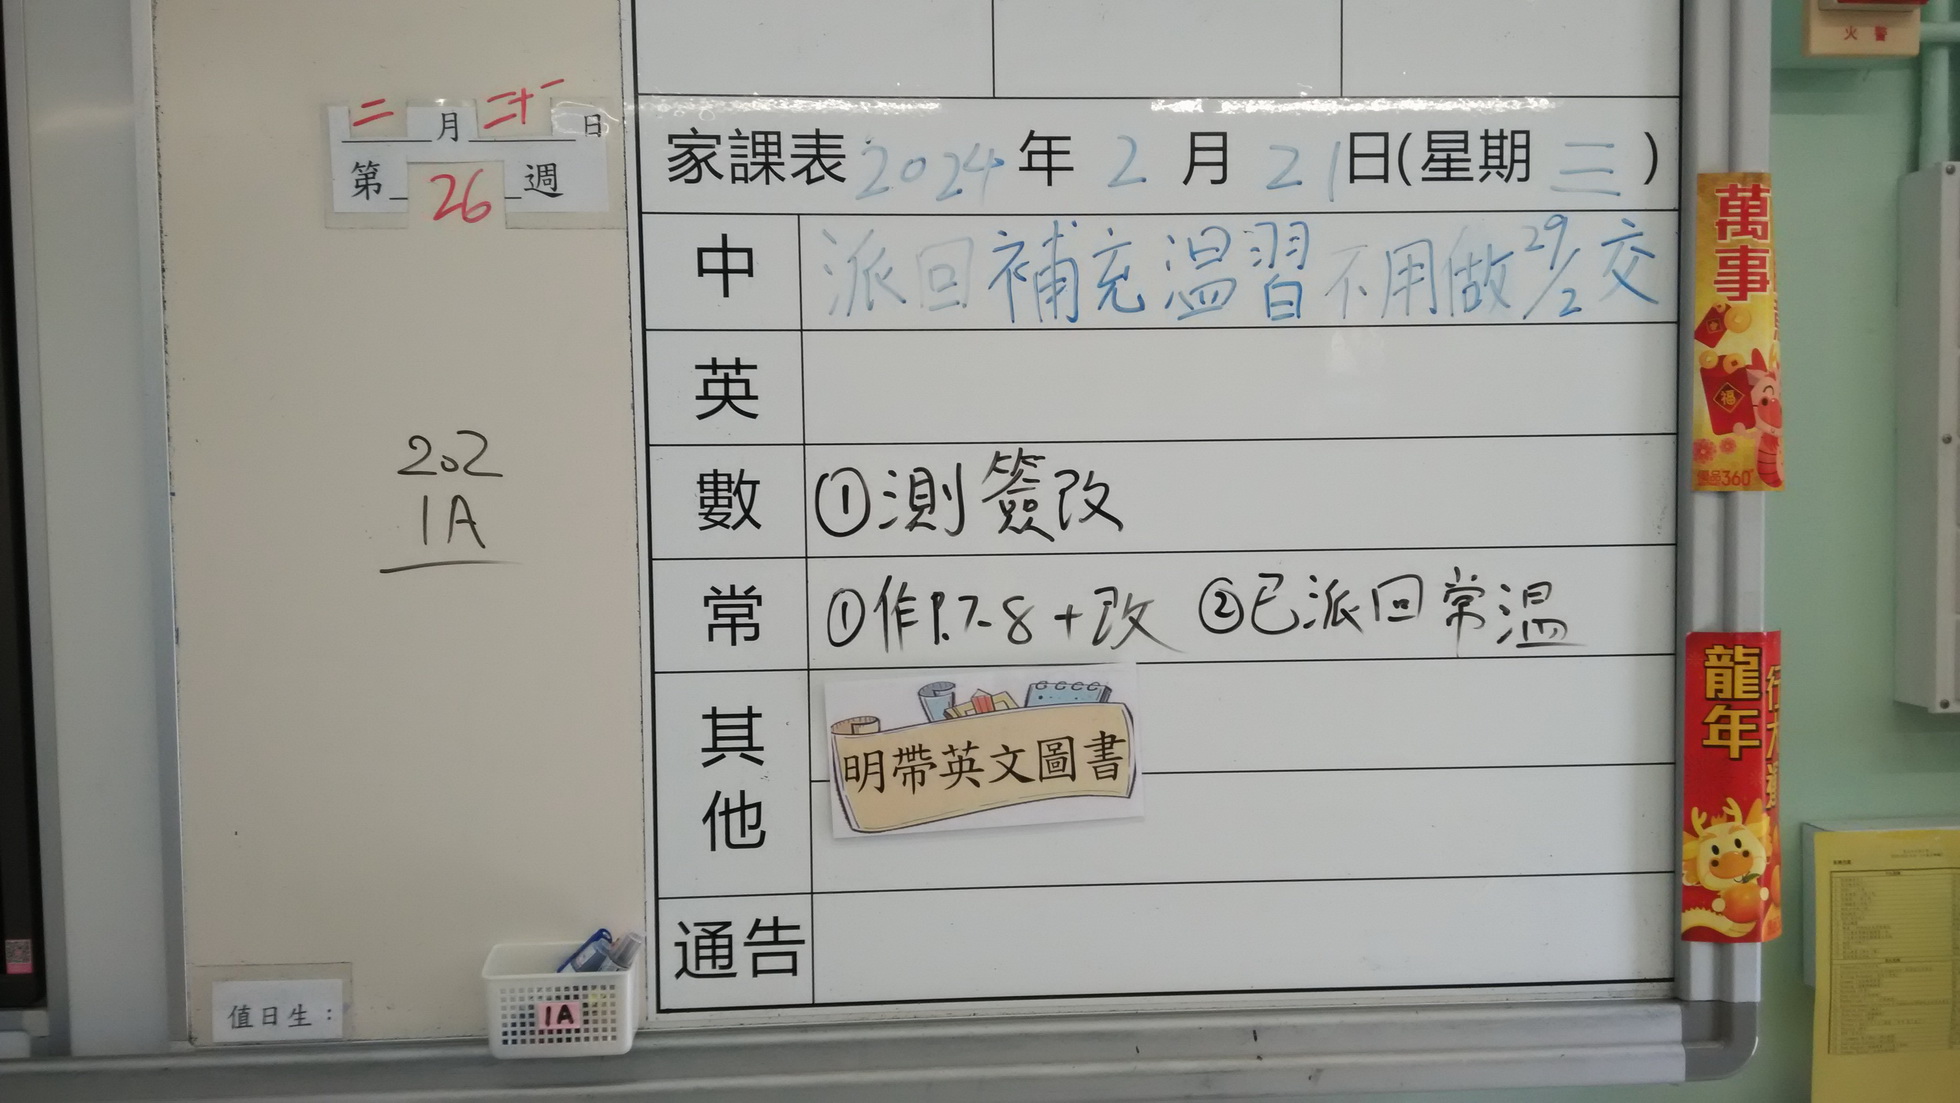 二月二十一日
第26週
202
1A
家課表2024年2月21日(星期三)
中 派回補充溫習不用做29/2交
英
數 ①測簽改
常 ①作P.7-8+改 ②已派回常温
其他
明帶英文圖書
通告
值日生：
1A
火警
萬事
福
360°
龍年